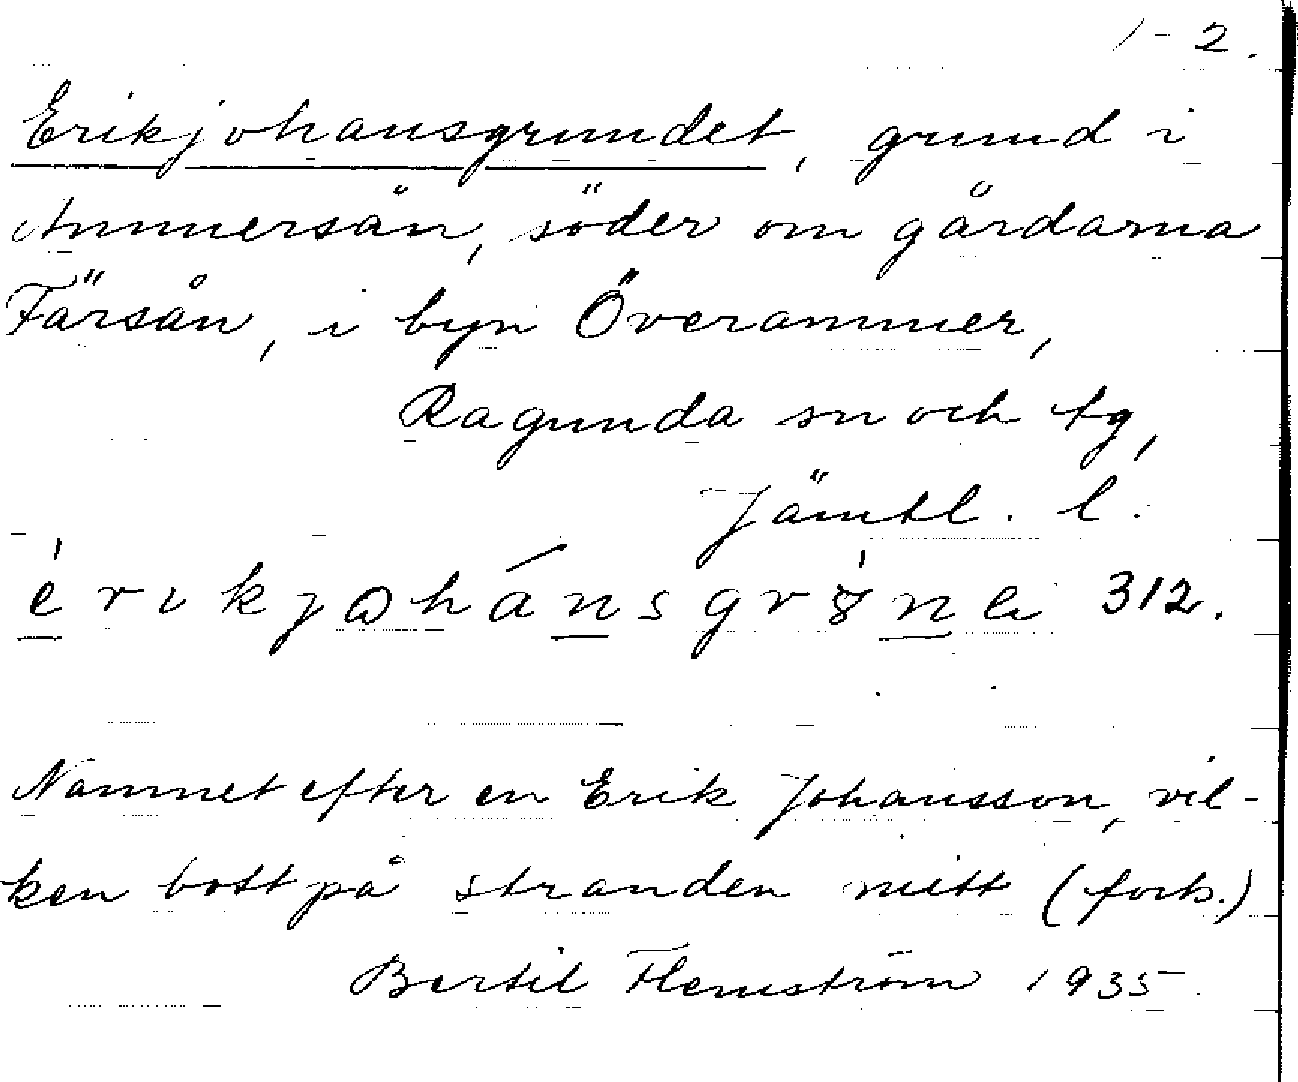 1-2.
Erikjohansgrundet, grund i
Ammersån, söder om gårdarna
Färsån, i byn Överammer,
Ragunda sn och tg,
Jämtl. l.
312.
Namnet efter en Erik Johansson, vil-
ken bott på stranden mitt (forts.)
Bertil Flemström 1935.